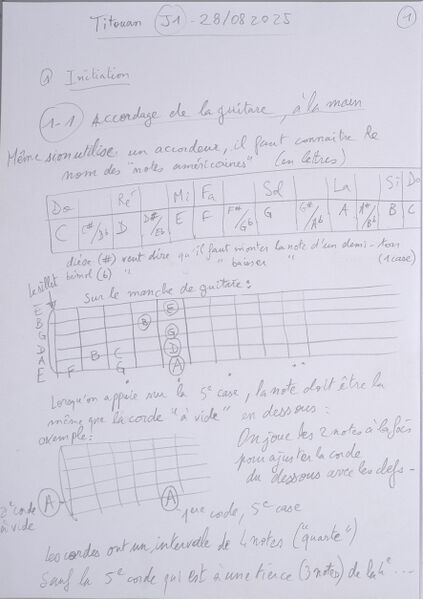 Titouan J1 - 28/08 2025 1
Initiation
1-1 Accordage de la guitare, à la main
Même si on utilise un accordeur, il faut connaitre le
nom des "notes américaines" (en lettres)
Do Ré Mi Fa Sol La Si Do
C C#/Db D D#/Eb E F F#/Gb G G#/Ab A A#/Bb B C
dièse (#) veut dire qu'il faut monter la note d'un demi-ton
bémol (b) " " baisser " (1 case)
Le sillet
Sur le manche de guitare :
E E
B B
G G
D D
A B C A
E F G
Lorsqu'on appuie sur la 5e case, la note doit être la
même que la corde "à vide" en dessous :
exemple :
On joue les 2 notes à la fois
pour ajuster la corde
du dessous avec les clefs -
2e corde A A
à vide
corde, 5e case
Les cordes ont un intervalle de 4 notes ("quarte")
Sauf la 5e corde qui est à une tierce (3 notes) de la 4e ...